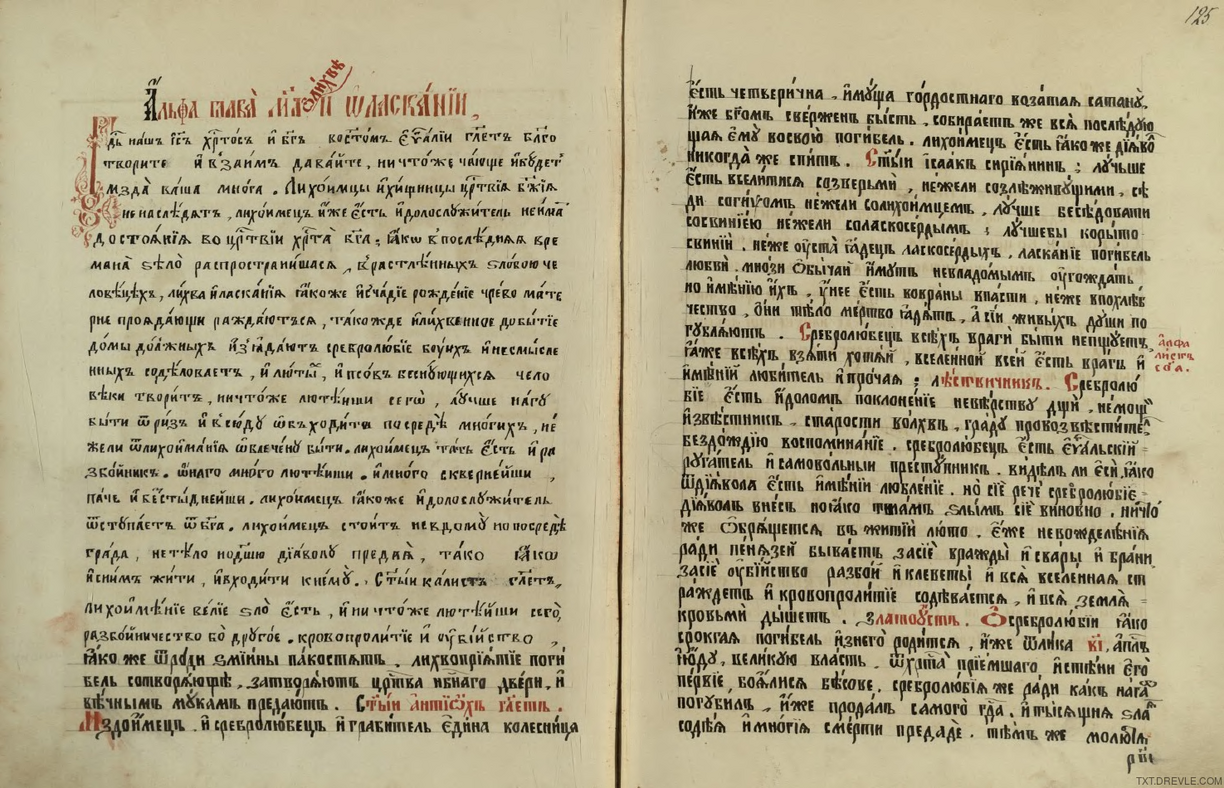 125
ѡ ли́хвѣ
А҆́льфа глава̀ м҃а и҆ ѡ ласка́нїи
Гдⷭ҇ь нашъ і҆с҃ъ хрⷭ҇то́съ и҆ бг҃ъ во ст҃о́мъ є҆ѵⷢ҇а́лїи гл҃етъ бл҃го
творите и҆ вза́имъ дава́йте, ничто́же ча́юще и҆ бꙋ́детъ
мзда̀ ва́ша мно́га. Лихои́мцы и҆ хи́щницы црⷭ҇твїѧ бж҃їѧ
не наслѣ́дѧтъ, лихои́мецъ и҆́же є҆́сть и҆долослꙋжи́тель не и҆́мать
достоѧ́нїѧ во црⷭ҇твїи хрⷭ҇та̀ бг҃а; ꙗ҆́кѡ в послѣ́днѧѧ вре
мана̀ ѕѣлѡ̀ распространи́шасѧ, в растлѣ́нныхъ ѕло́бою че
ловѣ́цѣхъ, ли́хва и҆ ласка́нїѧ ꙗ҆́коже и҆счѧ́дїе рожде́нїе чре́во мате
рне проѧда́ющи ражда́ютъсѧ, та́кожде и҆ ли́хвенное добы́тїе
до́мы до́лжныхъ и҆з̾ѧда́ютъ сребролю́бїе бꙋ́ихъ и҆ несмы́сле
нныхъ содѣ́ловаетъ, и҆ лю́тыⷯ, и҆ псо́въ беснꙋ́ющихсѧ чело
вѣ́ки твори́тъ, ничто́же лютѣ́йши сегѡ̀, лꙋ́чше на́гꙋ
бы́ти ѿ ри́зъ и҆ всю́дꙋ ѡ҆бъходи́ти посредѣ̀ мно́гихъ, не́
жели ѿ лихои́манїѧ ѡ҆влече́нꙋ бы́ти. лихои́мецъ та́ть є҆́сть и҆ ра
збо́йникъ. ѻ҆́наго мно́го лютѣ́йши. и҆ мно́го скверне́йши
па́че и҆ безсты́днейши. лихои́мецъ ꙗ҆́коже и҆долослꙋжи́тель
ѿстꙋпа́етъ ѿ бг҃а. лихои́мецъ стои́тъ не в домꙋ̀ но посредѣ̀
гра́да, не тѣ́ло но дш҃ꙋ дїа́волꙋ предаѧ̀, та́ко ꙗ҆́кѡ
и҆ с ни́мъ жи́ти, и҆ входи́ти к немꙋ̀. Ст҃ы́й кали́стъ гл҃етъ,
Лихои́мѣнїе ве́лїе ѕло̀ є҆́сть, и҆ ничто́же лютѣ́йши сего̀,
разбо́йничество бо̀ дрꙋго́е. кровопроли́тїе и҆ ᲂу҆бі́йство,
ꙗ҆́ко же ѿро́ди ѕмїи́ны па́костѧтъ. ли́хвопрїѧ́тїе поги́
бель сотворѧ́юще, затворѧ́ютъ црⷭ҇тва нбⷭ҇наго две́ри, и҆
вѣ́чнымъ мꙋ́камъ предаю́тъ. Ст҃ы́й а҆нтїѡ́хъ гл҃етъ.
Мздои́мецъ. и҆ сребролю́бецъ и҆ граби́тель є҆ди́на колесни́ца
є҆́сть четвери́чна, и҆мꙋ́ща го́рдостнаго возата́ѧ сатанꙋ̀,
и҆́же бг҃омъ све́рженъ бы́сть, собира́етъ же всѧ̀ послѣ́дꙋю
щаѧ є҆мꙋ̀ во свою̀ поги́бель. лихои́мецъ є҆́сть ꙗ҆́коже дїѧ́волъ
никогда́же спи́тъ. Ст҃ы́й і҆саа́къ сирїѧ́нинъ; лꙋ́чше
є҆́сть всели́тисѧ со звѣрьмѝ, не́жели со злѣ́живꙋщими, сѣ
ди со гнꙋ́сомъ не́жели со лихои́мцемъ, лꙋ́чше бесѣ́довати
со свинїе́ю не́жели со ласкосе́рдымъ; лꙋ́чше бы коры́то
сви́нїи, не́же ᲂу҆ста̀ ꙗ҆де́цъ ласкосе́рдыхъ, ласка́нїе поги́бель
любвѝ. мно́зи ѻ҆бы́чай и҆мꙋ́тъ не владо́мымъ ᲂу҆гожда́ть
но и҆мѣ́нїю и҆́хъ, ᲂу҆́нее є҆́сть во вра́ны впа́сти, не́же в похлѣб
чество, ѻ҆нѝ тѣ́ло ме́ртво ꙗ҆дѧ́тъ, а҆ сїѝ живы́хъ дꙋ́ши по
гꙋблѧ́ютъ. Сребролю́бецъ всѣ́хъ врагѝ бы́ти непщꙋ́етъ,
а҆́лфа
ли́стъ
с҃а.
ꙗ҆́же всѣ́хъ взѧ́ти хотѧ́й, вселе́нной все́й є҆́сть вра́гъ и҆
и҆мѣ́нїй люби́тель и҆ про́чаѧ: лѣ́ствичникъ. Сребролю́
бїе є҆́сть и҆́доломъ поклоне́нїе невѣ́рствꙋ дщѝ, не́мощи
и҆звѣ́стникъ, ста́рости волхвъ, гра́дꙋ провозвѣ́стител
бездо́ждїю воспомина́нїе. сребролю́бецъ є҆́сть є҆ѵⷢ҇а́льскїй
рꙋга́тель и҆ самово́льный престꙋ́пникъ. ви́дѣлъ ли є҆сѝ, ꙗ҆́кѡ
ѿ дїѧ́вола є҆́сть и҆мѣ́нїй любле́нїе. но сїѐ речѐ сребролю́бїе
дїѧ́волъ внесъ по ꙗ҆́ко тма́мъ ѕлы́мъ сїѐ вино́вно. ничто́
же ѻ҆брѧ́щетсѧ въ житїѝ лю́то. є҆́же не вожделѣ́нїѧ
ра́ди пенѧ́зей быва́етъ за сїѐ вражды̀ и҆ сва́ры и҆ бра́ни
за сїѐ ᲂу҆бі́йство разбо́й и҆ клеветы̀ и҆ всѧ̀ вселе́ннаѧ ст
ра́ждетъ и҆ кровопроли́тїе содѣва́етсѧ, и҆ всѧ̀ землѧ̀
кровьмѝ ды́шетъ. златоꙋ́стъ. Ѽ сребролю́бїи ꙗ҆́ко
сро́кгаѧ поги́бель и҆з̾ него̀ роди́тсѧ, и҆́же ѿ ли́ка в҃і, а҆пⷭ҇лъ
і҆ю́дꙋ, вели́кꙋю вла́сть. ѿ хрⷭ҇та̀ прїе́мшаго, и҆ сте́ни є҆го̀
пе́рвїе, боѧ́лисѧ бѣ́сове, сребролю́бїѧ же ра́ди ка́къ нага̀
погꙋби́лъ, и҆́же прода́лъ самого̀ гдⷭ҇а. и҆ ты́сѧщнїѧ ѕла̀
содѣ́ѧ и҆ мно́гїѧ сме́рти предадѐ. тѣ́мъ же молю́сѧ
TXT.DREVLE.COM